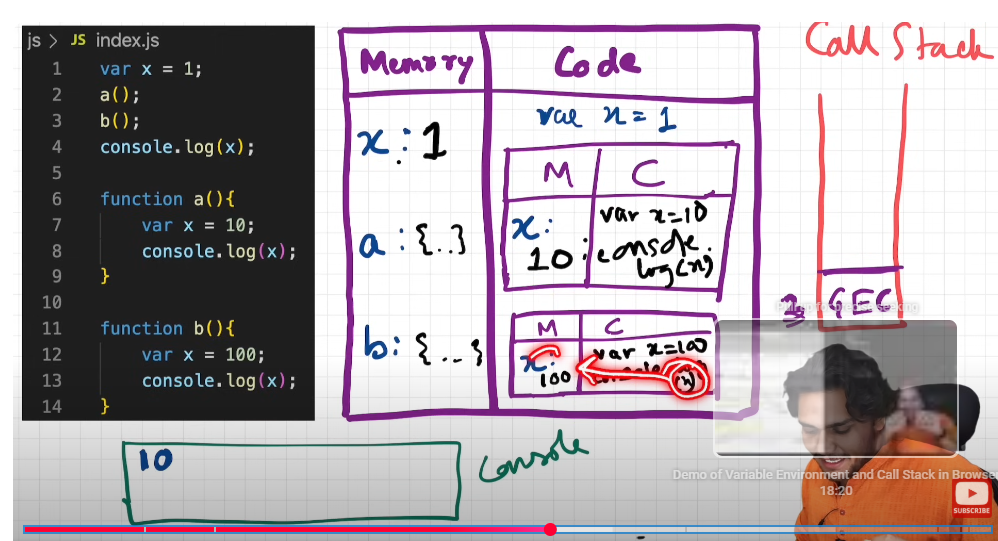 js > JS index.js
1 var x = 1;
2 a();
3 b();
4 console.log(x);
5
6 function a(){
7 var x = 10;
8 console.log(x);
9 }
10
11 function b(){
12 var x = 100;
13 console.log(x);
14 }
Memory
Code
x: 1
a: {..}
b: {...}
var x = 1
M
C
x:
10:
var x=10
console.
log(x)
M
C
x:
100
var x=100
(x)
Call Stack
GEC
10
Console
Demo of Variable Environment and Call Stack in Browse
18:20
SUBSCRIBE